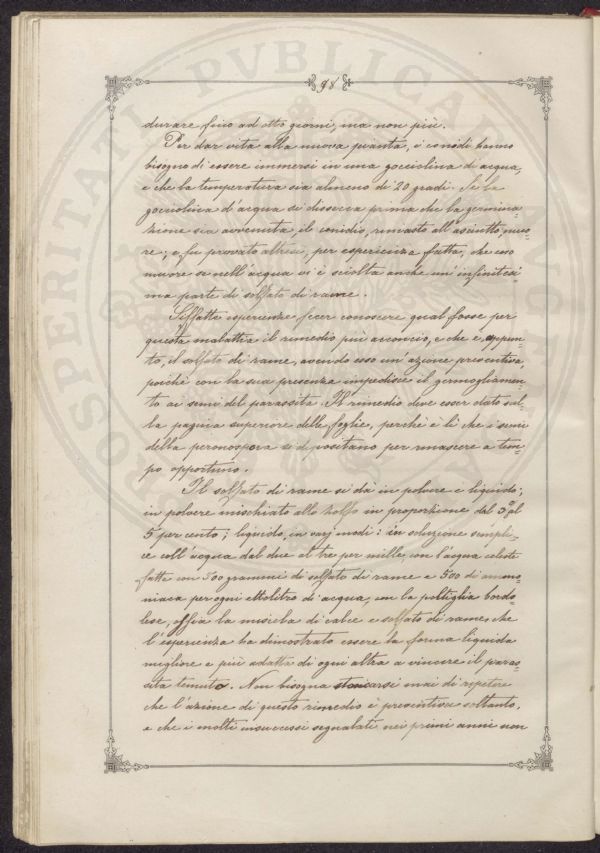 98
durare fino ad otto giorni, ma non più.
Per dar vita alla nuova pianta, i conidi hanno
bisogno di essere immersi in una gocciolina di acqua,
e che la temperatura sia almeno di 20 gradi. Se la
gocciolina d'acqua si dissecca prima che la germina-
zione sia avvenuta, il conidio, rimasto all'asciutto, muo-
re; e fu provato altresì, per esperienza fatta, che esso
muore se nell'acqua vi è sciolta anche un'infinitesi-
ma parte di solfato di rame.
Siffatte esperienze fecer conoscere qual fosse per
questa malattia il rimedio più acconcio, e che è, appun-
to, il solfato di rame, avendo esso un'azione preventiva,
poichè con la sua presenza impedisce il germogliamen-
to ai semi del parassita. Il rimedio deve esser dato sul-
la pagina superiore delle foglie, perchè è lì che i semi
della peronospora si depositano per rinascere a tem-
po opportuno.
Il solfato di rame si dà in polvere e liquido;
in polvere mischiato allo zolfo in proporzione dal 3 al
5 per cento; liquido, in varj modi: in soluzione sempli-
ce coll'acqua dal due al tre per mille, con l'acqua celeste
fatta con 500 grammi di solfato di rame e 500 di ammo-
niaca per ogni ettolitro di acqua, con la poltiglia bordo-
lese, ossia la miscela di calce e solfato di rame, che
l'esperienza ha dimostrato essere la forma liquida
migliore e più adatta di ogni altra a vincere il paras-
sita temuto. Non bisogna stancarsi mai di ripetere
che l'azione di questo rimedio è preventiva soltanto,
e che i molti insuccessi segnalati nei primi anni non
PROSPERITATI PVBLICAE AVGENDAE